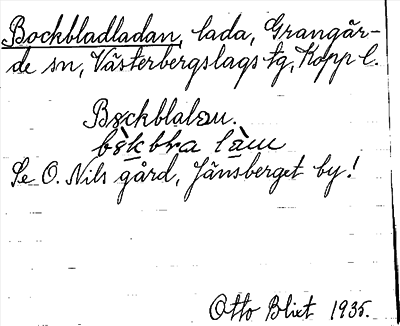 Bockbladladan, lada, Grangär-
de sn, Västerbergslags tg, Kopp l.
Bockblalam.
Se O. Nils gård, Jänsberget by!
Otto Blixt 1935.